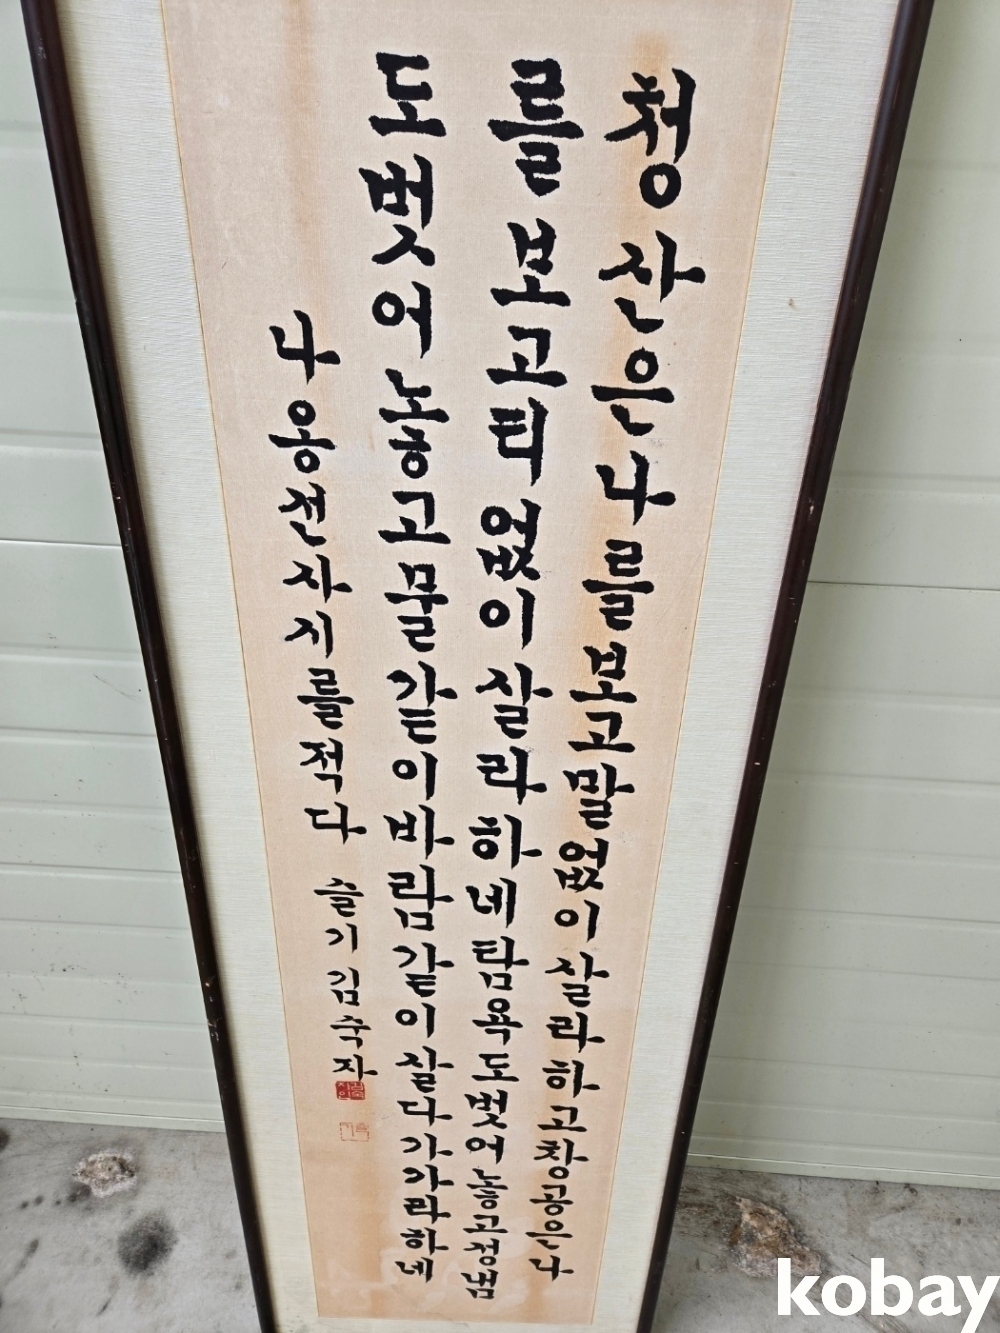 청산은나를보고말없이살라하고창공은나
를보고티없이살라하네탐욕도벗어놓고성냄
도벗어놓고물같이바람같이살다가가라하네
나옹선사시를적다 슬기 김숙자
kobay